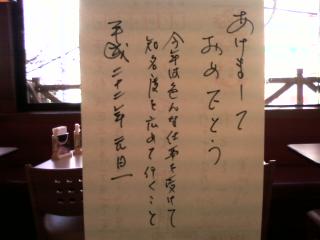 あけまして
おめでとう
今年は色んな仕事を受けて
知名度を広めて行くこと
平成二十二年元旦